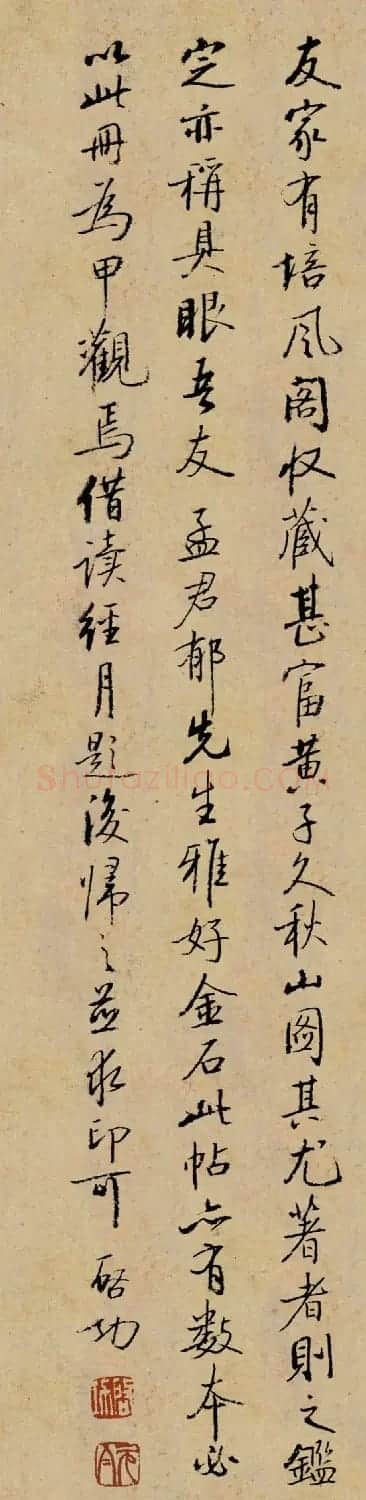 友家有培风阁收藏甚富黄子久秋山图其尤著者则之鑑
定亦稱具眼吾友孟君郁先生雅好金石此帖亦有数本必
以此冊為甲觀焉借读經月題後帰之並求印可 啓功